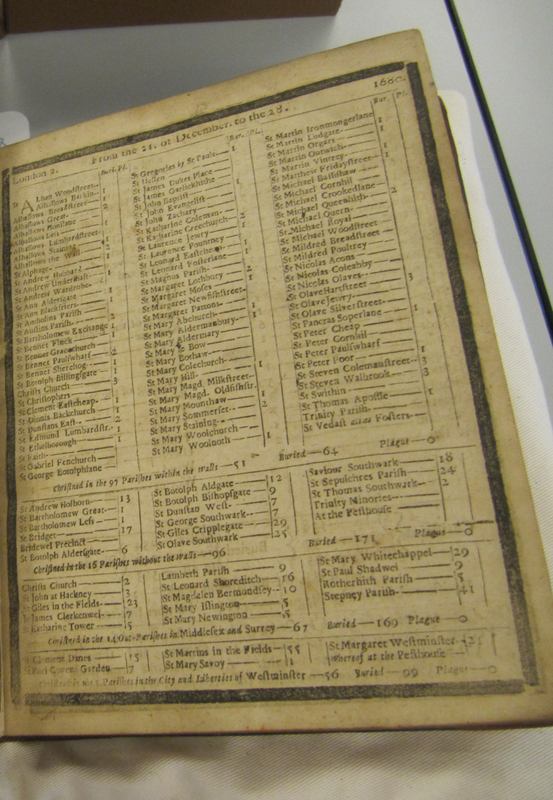 London 2. From the 21. of December. to the 28. 1660.
Bur. Pl.
Alban Woodstreet
Alhallows Barkin
Alhallows Breadstreet
Alhallows Great
Alhallows Honilane
Alhallows Less
Alhallows Lumbardstreet
St Alphage
St Andrew Hubbard
St Andrew Undershaft
St Andrew Wardrobe
St Ann Aldersgate
St Ann Blackfriers
St Antholins Parish
St Austins Parish
St Bartholomew Exchange
St Bennet Fynck
St Bennet Gracechurch
St Bennet Paulswharf
St Bennet Sherehog
St Botolph Billingsgate
Christs Church 3
St Christophers
St Clement Eastcheap 1
St Dionis Backchurch 1
St Dunstans East 2
St Edmund Lumbardstr. 1
St Ethelborough 1
St Faith
St Gabriel Fenchurch
St George Botolphlane
Bur. Pl.
St Gregories by St Pauls
St Hellen
St James Dukes Place
St James Garlickhithe
St John Baptist
St John Evangelist
St John Zachary
St Katharine Coleman
St Katharine Creechurch
St Laurence Jewry
St Laurence Pountney
St Leonard Eastcheap
St Leonard Fosterlane
St Magnus Parish
St Margaret Lothbury
St Margaret Moses
St Margaret Newfishstreet
St Margaret Pattons
St Mary Abchurch
St Mary Aldermanbury
St Mary Aldermary
St Mary le Bow
St Mary Bothaw
St Mary Colechurch
St Mary Hill
St Mary Magd. Milkstreet
St Mary Magd. Oldfishstr.
St Mary Mounshaw
St Mary Sommerset
St Mary Staining
St Mary Woolchurch
St Mary Woolnoth 1
Bur. Pl.
St Martin Ironmongerlane
St Martin Ludgate
St Martin Orgars
St Martin Outwich
St Martin Vintrey
St Matthew Fridaystreet
St Michael Bassishaw
St Michael Cornhil
St Michael Crookedlane
St Michael Queenhith 2
St Michael Quern
St Michael Royal
St Michael Woodstreet
St Mildred Breadstreet
St Mildred Poultrey
St Nicolas Acons
St Nicolas Coleabby
St Nicolas Olaves
St Olave Hartstreet 3
St Olave Jewry
St Olave Silverstreet
St Pancras Soperlane
St Peter Cheap
St Peter Cornhil
St Peter Paulswharf
St Peter Poor
St Steven Colemanstreet 3
St Steven Walbrook 3
St Swithin
St Thomas Apostle 1
Trinity Parish
St Vedast alias Fosters
Christned in the 97 Parishes within the walls—51 Buried—64 Plague—0
St Andrew Holborn 13
St Bartholomew Great 1
St Bartholomew Less 1
St Bridget 17
Bridewel Precinct
St Botolph Aldersgate 6
St Botolph Aldgate 12
St Botolph Bishopsgate 9
St Dunstan West 7
St George Southwark 7
St Giles Cripplegate 29
St Olave Southwark 25
Saviour Southwark 18
St Sepulchres Parish 24
St Thomas Southwark 2
Trinity Minories
At the Pesthouse
Christned in the 16 Parishes without the Walls—96 Buried—171 Plague—0
Christs Church 2
St John at Hackney 3
St Giles in the Fields 23
St James Clerkenwel 7
St Katharine Tower 5
Lambeth Parish 9
St Leonard Shoreditch 16
St Magdalen Bermondsey 10
St Mary Islington 5
St Mary Newington 5
St Mary Whitechappel 29
St Paul Shadwel 9
Rotherhith Parish 5
Stepney Parish 41
Christned in the 14 Out-Parishes in Middlesex and Surrey—67 Buried—169 Plague—0
St Clement Danes 15
St Paul Covent Garden 7
St Martins in the Fields 55
St Mary Savoy 1
St Margaret Westminster 21
whereof at the Pesthouse
Christned in the 5 Parishes in the City and Liberties of Westminster—56 Buried—99 Plague—0